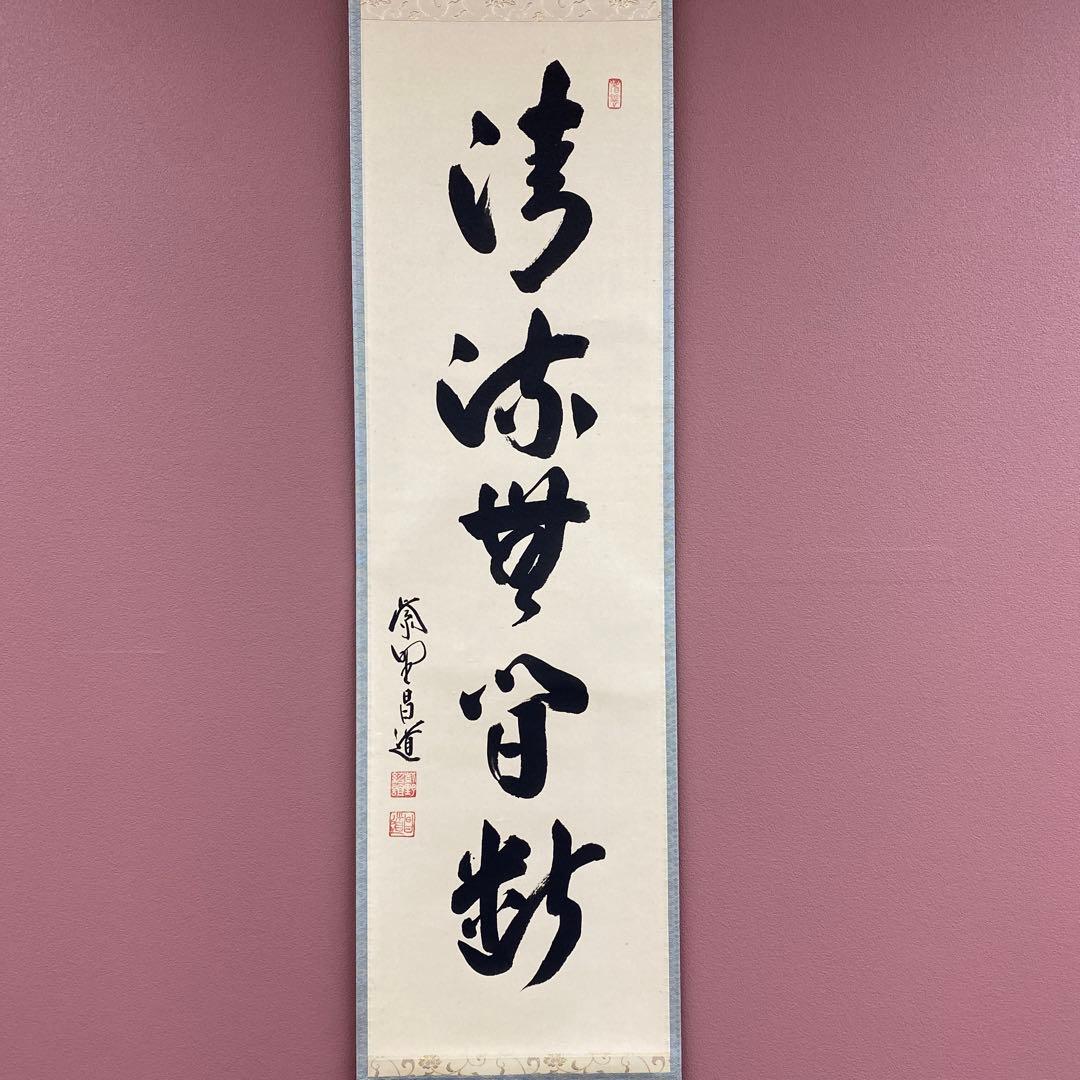 清流無間断
紫野昌道